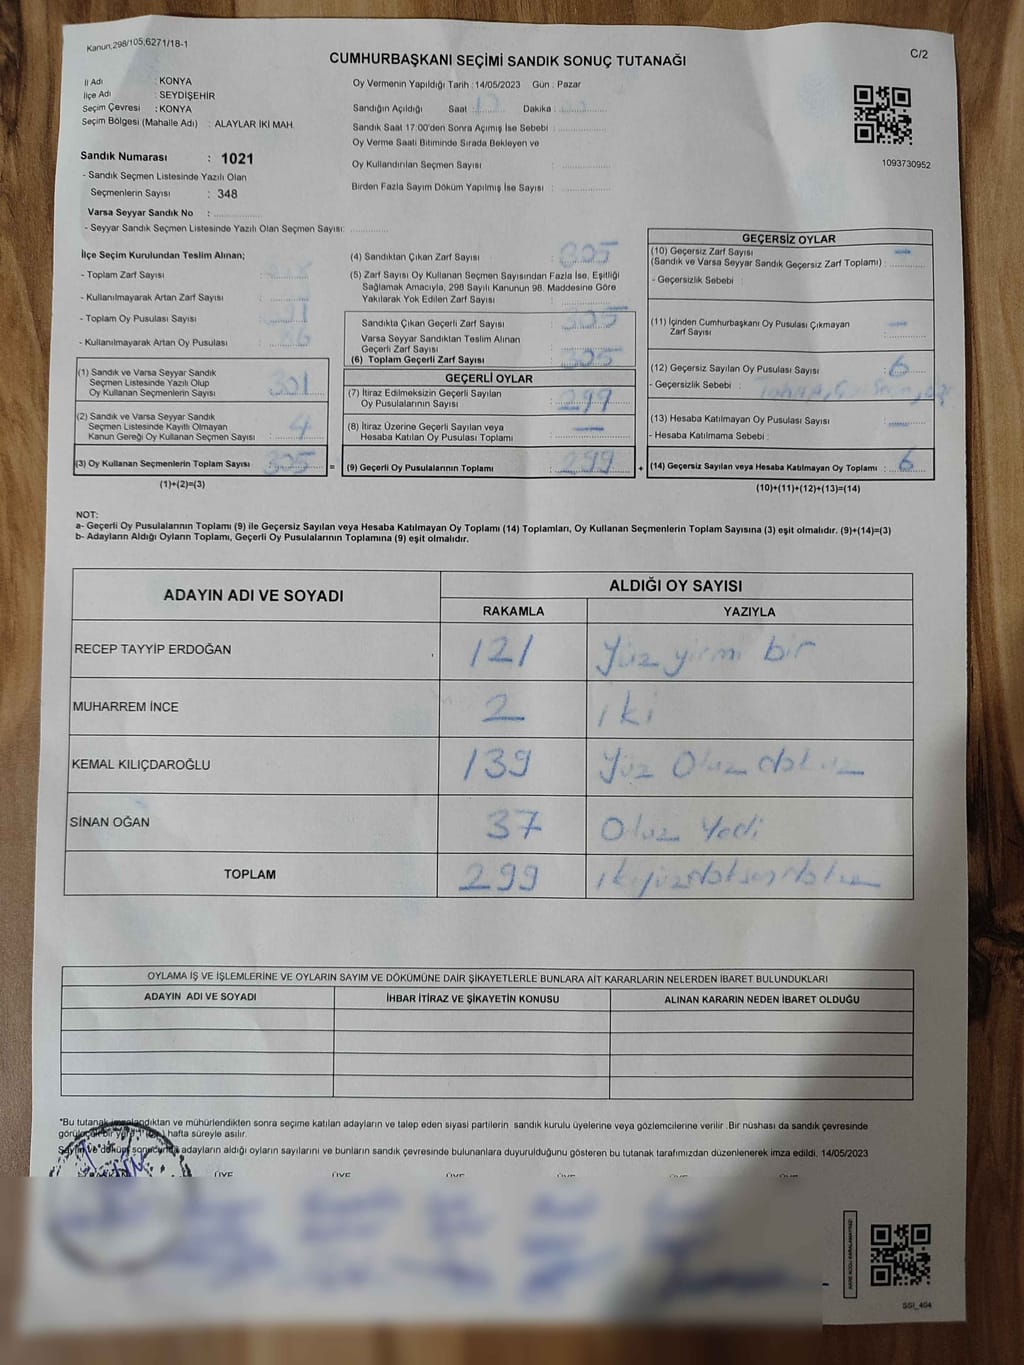 Kanun,298/105,6271/18-1
C/2
CUMHURBAŞKANI SEÇİMİ SANDIK SONUÇ TUTANAĞI
İl Adı : KONYA
İlçe Adı : SEYDİŞEHİR
Seçim Çevresi : KONYA
Seçim Bölgesi (Mahalle Adı) : ALAYLAR İKİ MAH.
Sandık Numarası : 1021
- Sandık Seçmen Listesinde Yazılı Olan
Seçmenlerin Sayısı : 348
Varsa Seyyar Sandık No :
- Seyyar Sandık Seçmen Listesinde Yazılı Olan Seçmen Sayısı:
Oy Vermenin Yapıldığı Tarih : 14/05/2023 Gün : Pazar
Sandığın Açıldığı Saat : 17 Dakika :
Sandık Saat 17:00'den Sonra Açımış İse Sebebi :
Oy Verme Saati Bitiminde Sırada Bekleyen ve
Oy Kullandırılan Seçmen Sayısı :
Birden Fazla Sayım Döküm Yapılmış İse Sayısı :
1093730952
İlçe Seçim Kurulundan Teslim Alınan;
- Toplam Zarf Sayısı :
- Kullanılmayarak Artan Zarf Sayısı :
- Toplam Oy Pusulası Sayısı :
- Kullanılmayarak Artan Oy Pusulası :
(1) Sandık ve Varsa Seyyar Sandık
Seçmen Listesinde Yazılı Olup
Oy Kullanan Seçmenlerin Sayısı : 301
(2) Sandık ve Varsa Seyyar Sandık
Seçmen Listesinde Kayıtlı Olmayan
Kanun Gereği Oy Kullanan Seçmen Sayısı : 4
(3) Oy Kullanan Seçmenlerin Toplam Sayısı : 305 =
(1)+(2)=(3)
(4) Sandıktan Çıkan Zarf Sayısı : 305
(5) Zarf Sayısı Oy Kullanan Seçmen Sayısından Fazla İse, Eşitliği
Sağlamak Amacıyla, 298 Sayılı Kanunun 98. Maddesine Göre
Yakılarak Yok Edilen Zarf Sayısı :
Sandıkta Çıkan Geçerli Zarf Sayısı : 305
Varsa Seyyar Sandıktan Teslim Alınan
Geçerli Zarf Sayısı :
(6) Toplam Geçerli Zarf Sayısı : 305
GEÇERLİ OYLAR
(7) İtiraz Edilmeksizin Geçerli Sayılan
Oy Pusulalarının Sayısı : 299
(8) İtiraz Üzerine Geçerli Sayılan veya
Hesaba Katılan Oy Pusulası Toplamı : —
(9) Geçerli Oy Pusulalarının Toplamı : 299 +
GEÇERSİZ OYLAR
(10) Geçersiz Zarf Sayısı —
(Sandık ve Varsa Seyyar Sandık Geçersiz Zarf Toplamı) :
- Geçersizlik Sebebi :
(11) İçinden Cumhurbaşkanı Oy Pusulası Çıkmayan
Zarf Sayısı : —
(12) Geçersiz Sayılan Oy Pusulası Sayısı : 6
- Geçersizlik Sebebi :
(13) Hesaba Katılmayan Oy Pusulası Sayısı : —
- Hesaba Katılmama Sebebi :
(14) Geçersiz Sayılan veya Hesaba Katılmayan Oy Toplamı : 6
(10)+(11)+(12)+(13)=(14)
NOT:
a- Geçerli Oy Pusulalarının Toplamı (9) ile Geçersiz Sayılan veya Hesaba Katılmayan Oy Toplamı (14) Toplamları, Oy Kullanan Seçmenlerin Toplam Sayısına (3) eşit olmalıdır. (9)+(14)=(3)
b- Adayların Aldığı Oyların Toplamı, Geçerli Oy Pusulalarının Toplamına (9) eşit olmalıdır.
ADAYIN ADI VE SOYADI
ALDIĞI OY SAYISI
RAKAMLA YAZIYLA
RECEP TAYYİP ERDOĞAN 121 Yüz yirmi bir
MUHARREM İNCE 2 iki
KEMAL KILIÇDAROĞLU 139 Yüz Otuz dokuz
SİNAN OĞAN 37 Otuz Yedi
TOPLAM 299 ikiyüzdoksandokuz
OYLAMA İŞ VE İŞLEMLERİNE VE OYLARIN SAYIM VE DÖKÜMÜNE DAİR ŞİKAYETLERLE BUNLARA AİT KARARLARIN NELERDEN İBARET BULUNDUKLARI
ADAYIN ADI VE SOYADI İHBAR İTİRAZ VE ŞİKAYETİN KONUSU ALINAN KARARIN NEDEN İBARET OLDUĞU
*Bu tutanak imzalandıktan ve mühürlendikten sonra seçime katılan adayların ve talep eden siyasi partilerin sandık kurulu üyelerine veya gözlemcilerine verilir .Bir nüshası da sandık çevresinde
hafta süreyle asılır.
Sayım ve döküm sonucunda adayların aldığı oyların sayılarını ve bunların sandık çevresinde bulunanlara duyurulduğunu gösteren bu tutanak tarafımızdan düzenlenerek imza edildi. 14/05/2023
ÜYE ÜYE ÜYE ÜYE ÜYE ÜYE
SSI_404